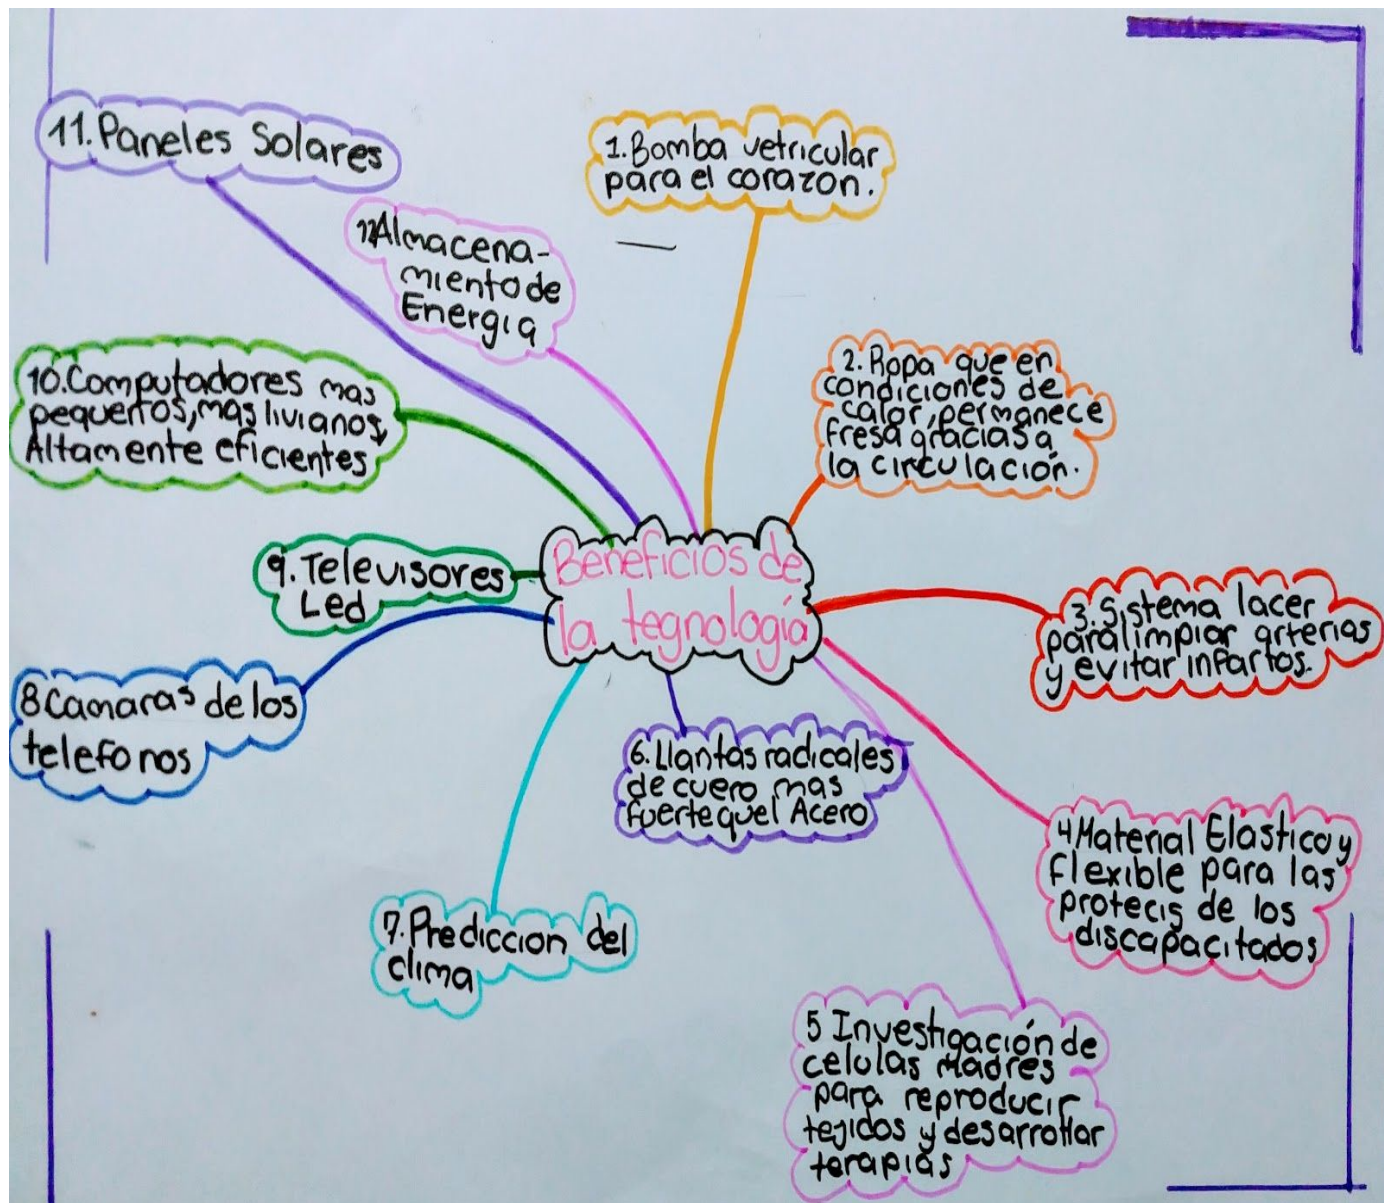 Beneficios de
la tegnología
1.Bomba vetricular
para el corazon.
2. Ropa que en
condiciones de
calor, permanece
fresa gracias a
la circulación.
3. Sistema lacer
para limpiar arterias
y evitar infartos.
4 Material Elastico y
flexible para las
protecis de los
discapacitados
5 Investigación de
celulas Madres
para reproducir
tejidos y desarrollar
terapias
6. Llantas radicales
de cuero mas
fuerte quel Acero
7. Prediccion del
clima
8 Camaras de los
telefonos
9. Televisores
Led
10. Computadores mas
pequeños, mas livianos,
Altamente eficientes
11. Paneles Solares
Almacena-
miento de
Energia